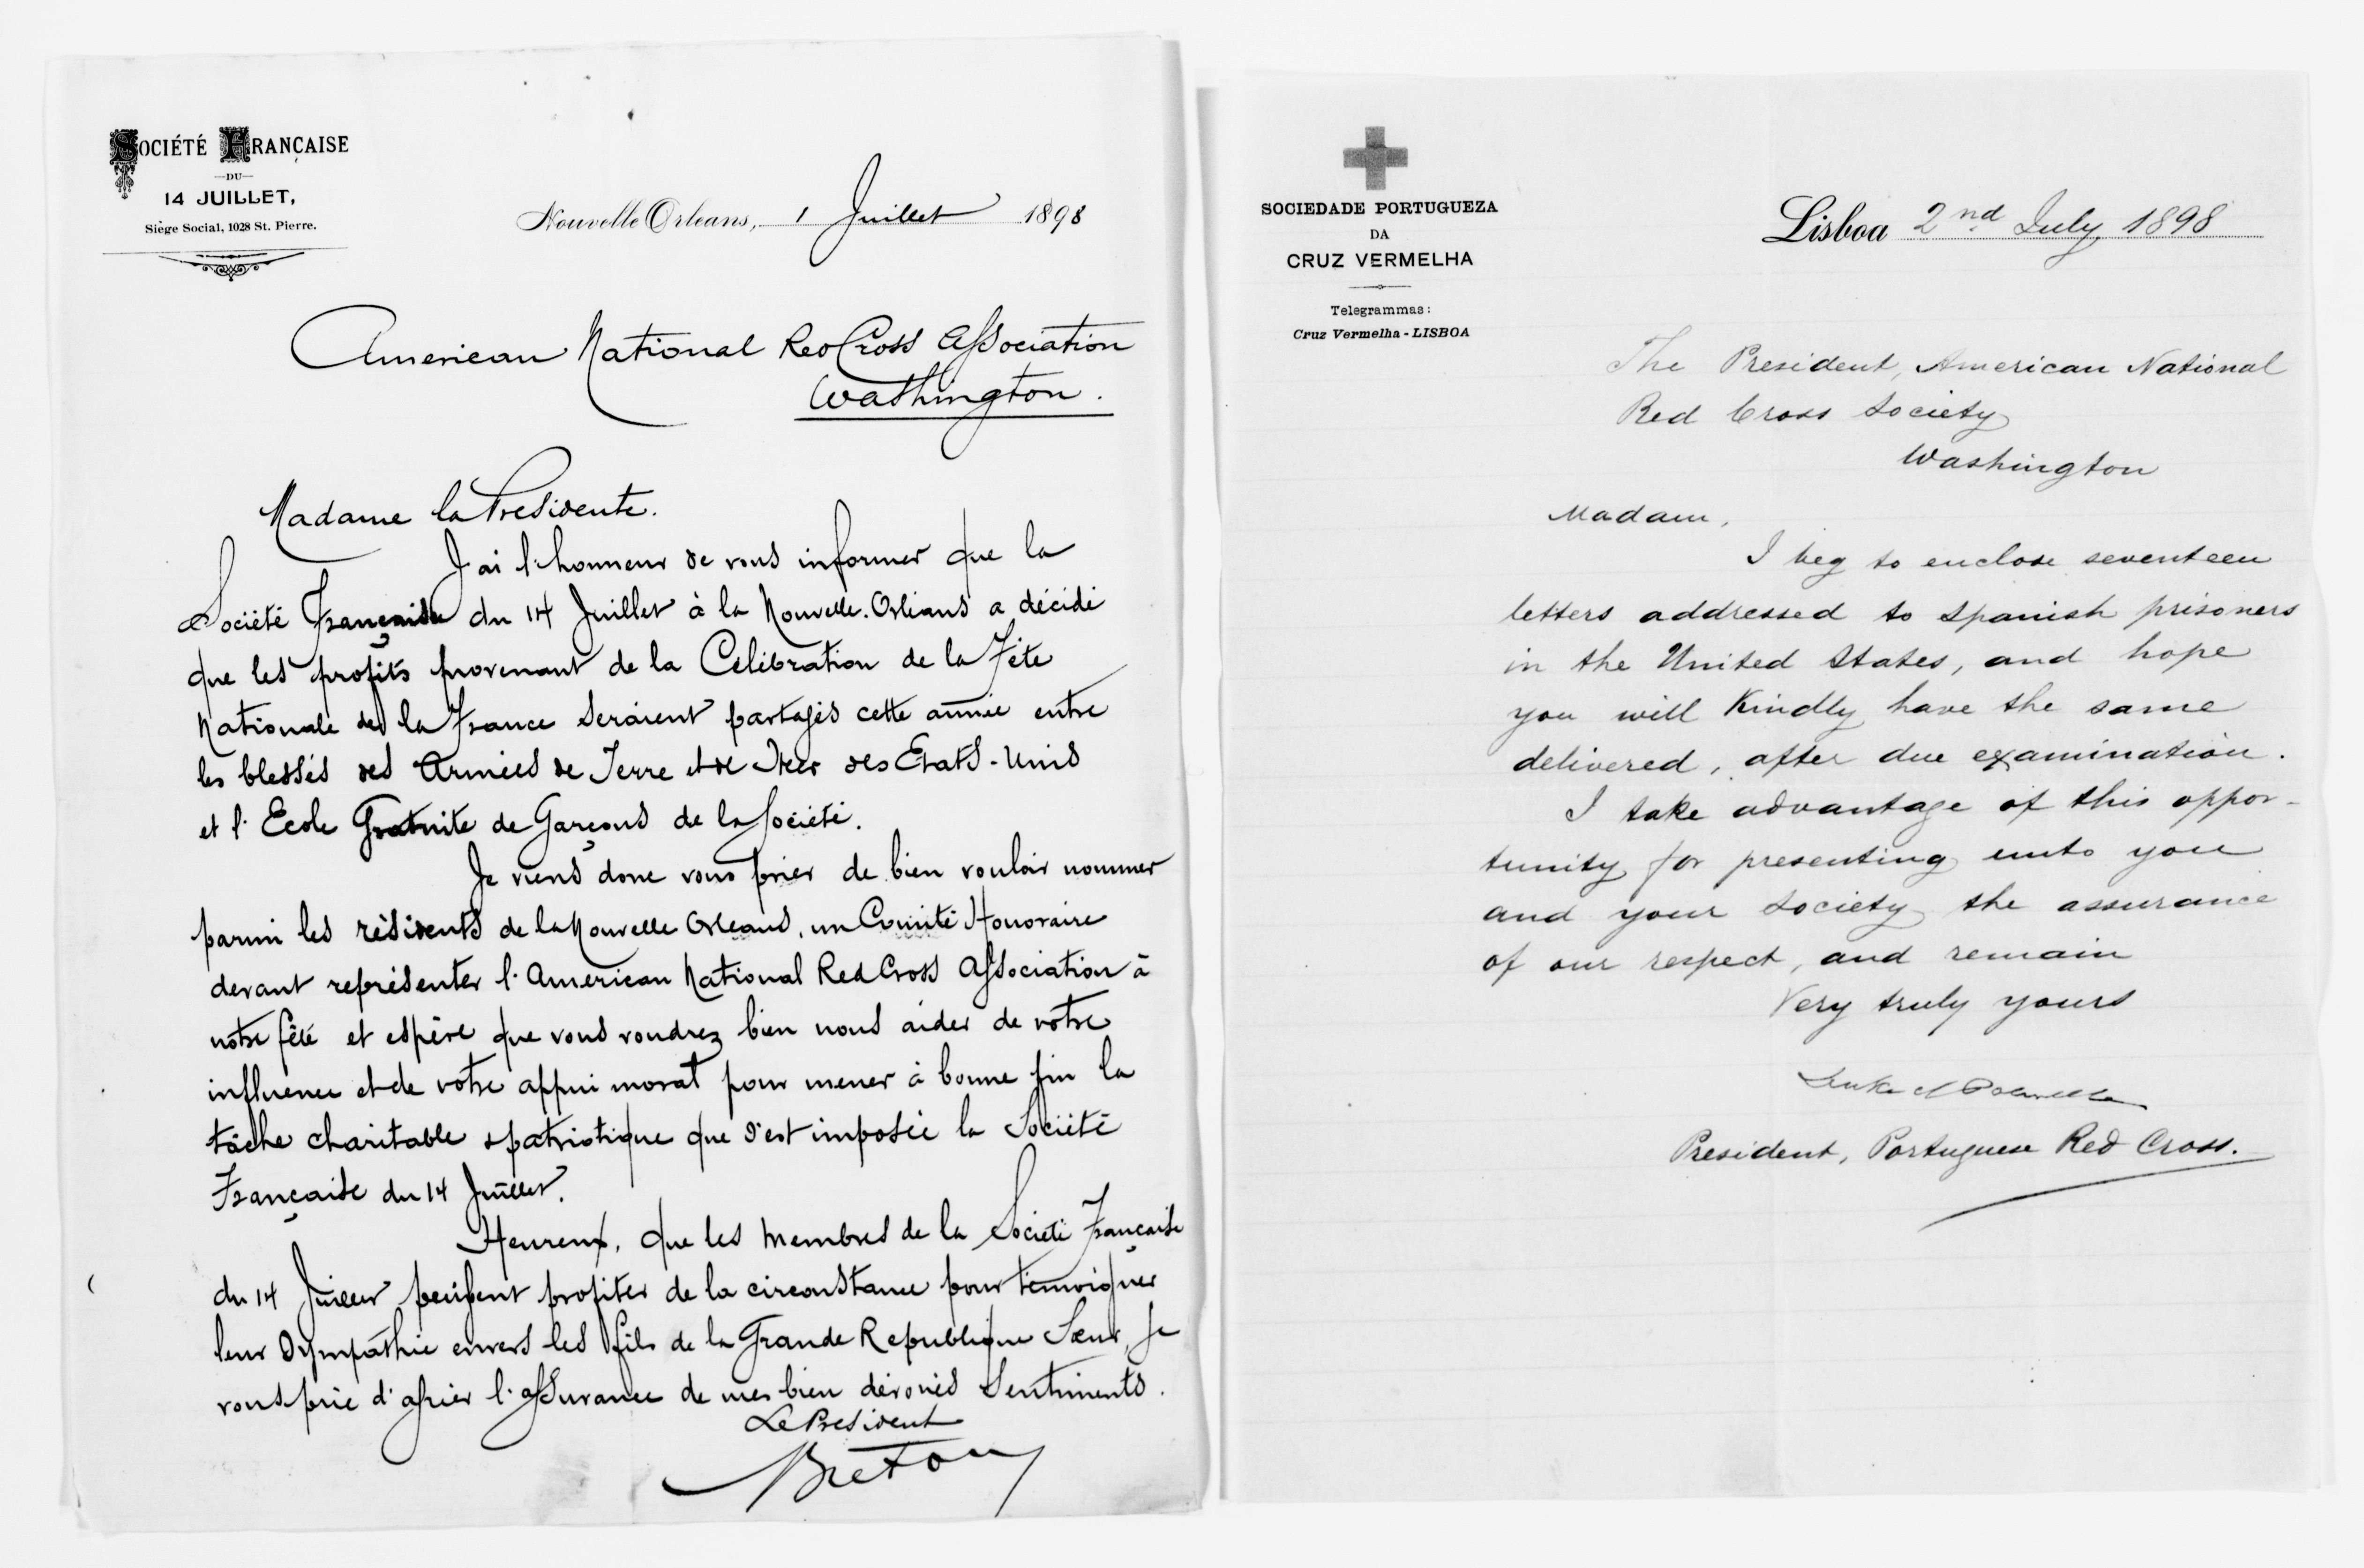 SOCIÉTÉ FRANÇAISE
—DU—
14 JUILLET,
Siège Social, 1028 St. Pierre.
Nouvelle Orleans, 1 Juillet 1898
American National Red Cross Association
Washington.
Madame la Presidente.
J'ai l'honneur de vous informer que la
Société Française du 14 Juillet à la Nouvelle. Orléans a décidé
que les profits provenant de la Célébration de la Fête
Nationale de la France seraient partagés cette année entre
les blessés des Armées de Terre et de Mer des Etats-Unis
et l'Ecole Gratuite de Garçons de la Société.
Je viens donc vous prier de bien vouloir nommer
parmi les résidents de la Nouvelle Orleans, un Comité Honoraire
devant représenter l'American National Red Cross Association à
notre fête et espère que vous voudrez bien nous aider de votre
influence et de votre appui moral pour mener à bonne fin la
tâche charitable & patriotique que s'est imposée la Société
Française du 14 Juillet.
Heureux, que les membres de la Société Française
du 14 Juillet puissent profiter de la circonstance pour témoigner
leur sympathie envers les fils de la Grande Republique Sœur, Je
vous prie d'agréer l'assurance de mes bien dévoués Sentiments.
Le President
Breton
SOCIEDADE PORTUGUEZA
DA
CRUZ VERMELHA
Telegrammas:
Cruz Vermelha - LISBOA
Lisboa 2nd July 1898
The President, American National
Red Cross Society
Washington
Madam,
I beg to enclose seventeen
letters addressed to Spanish prisoners
in the United States, and hope
you will kindly have the same
delivered, after due examination.
I take advantage of this oppor-
tunity for presenting unto you
and your Society the assurance
of our respect, and remain
Very truly yours
President, Portuguese Red Cross.